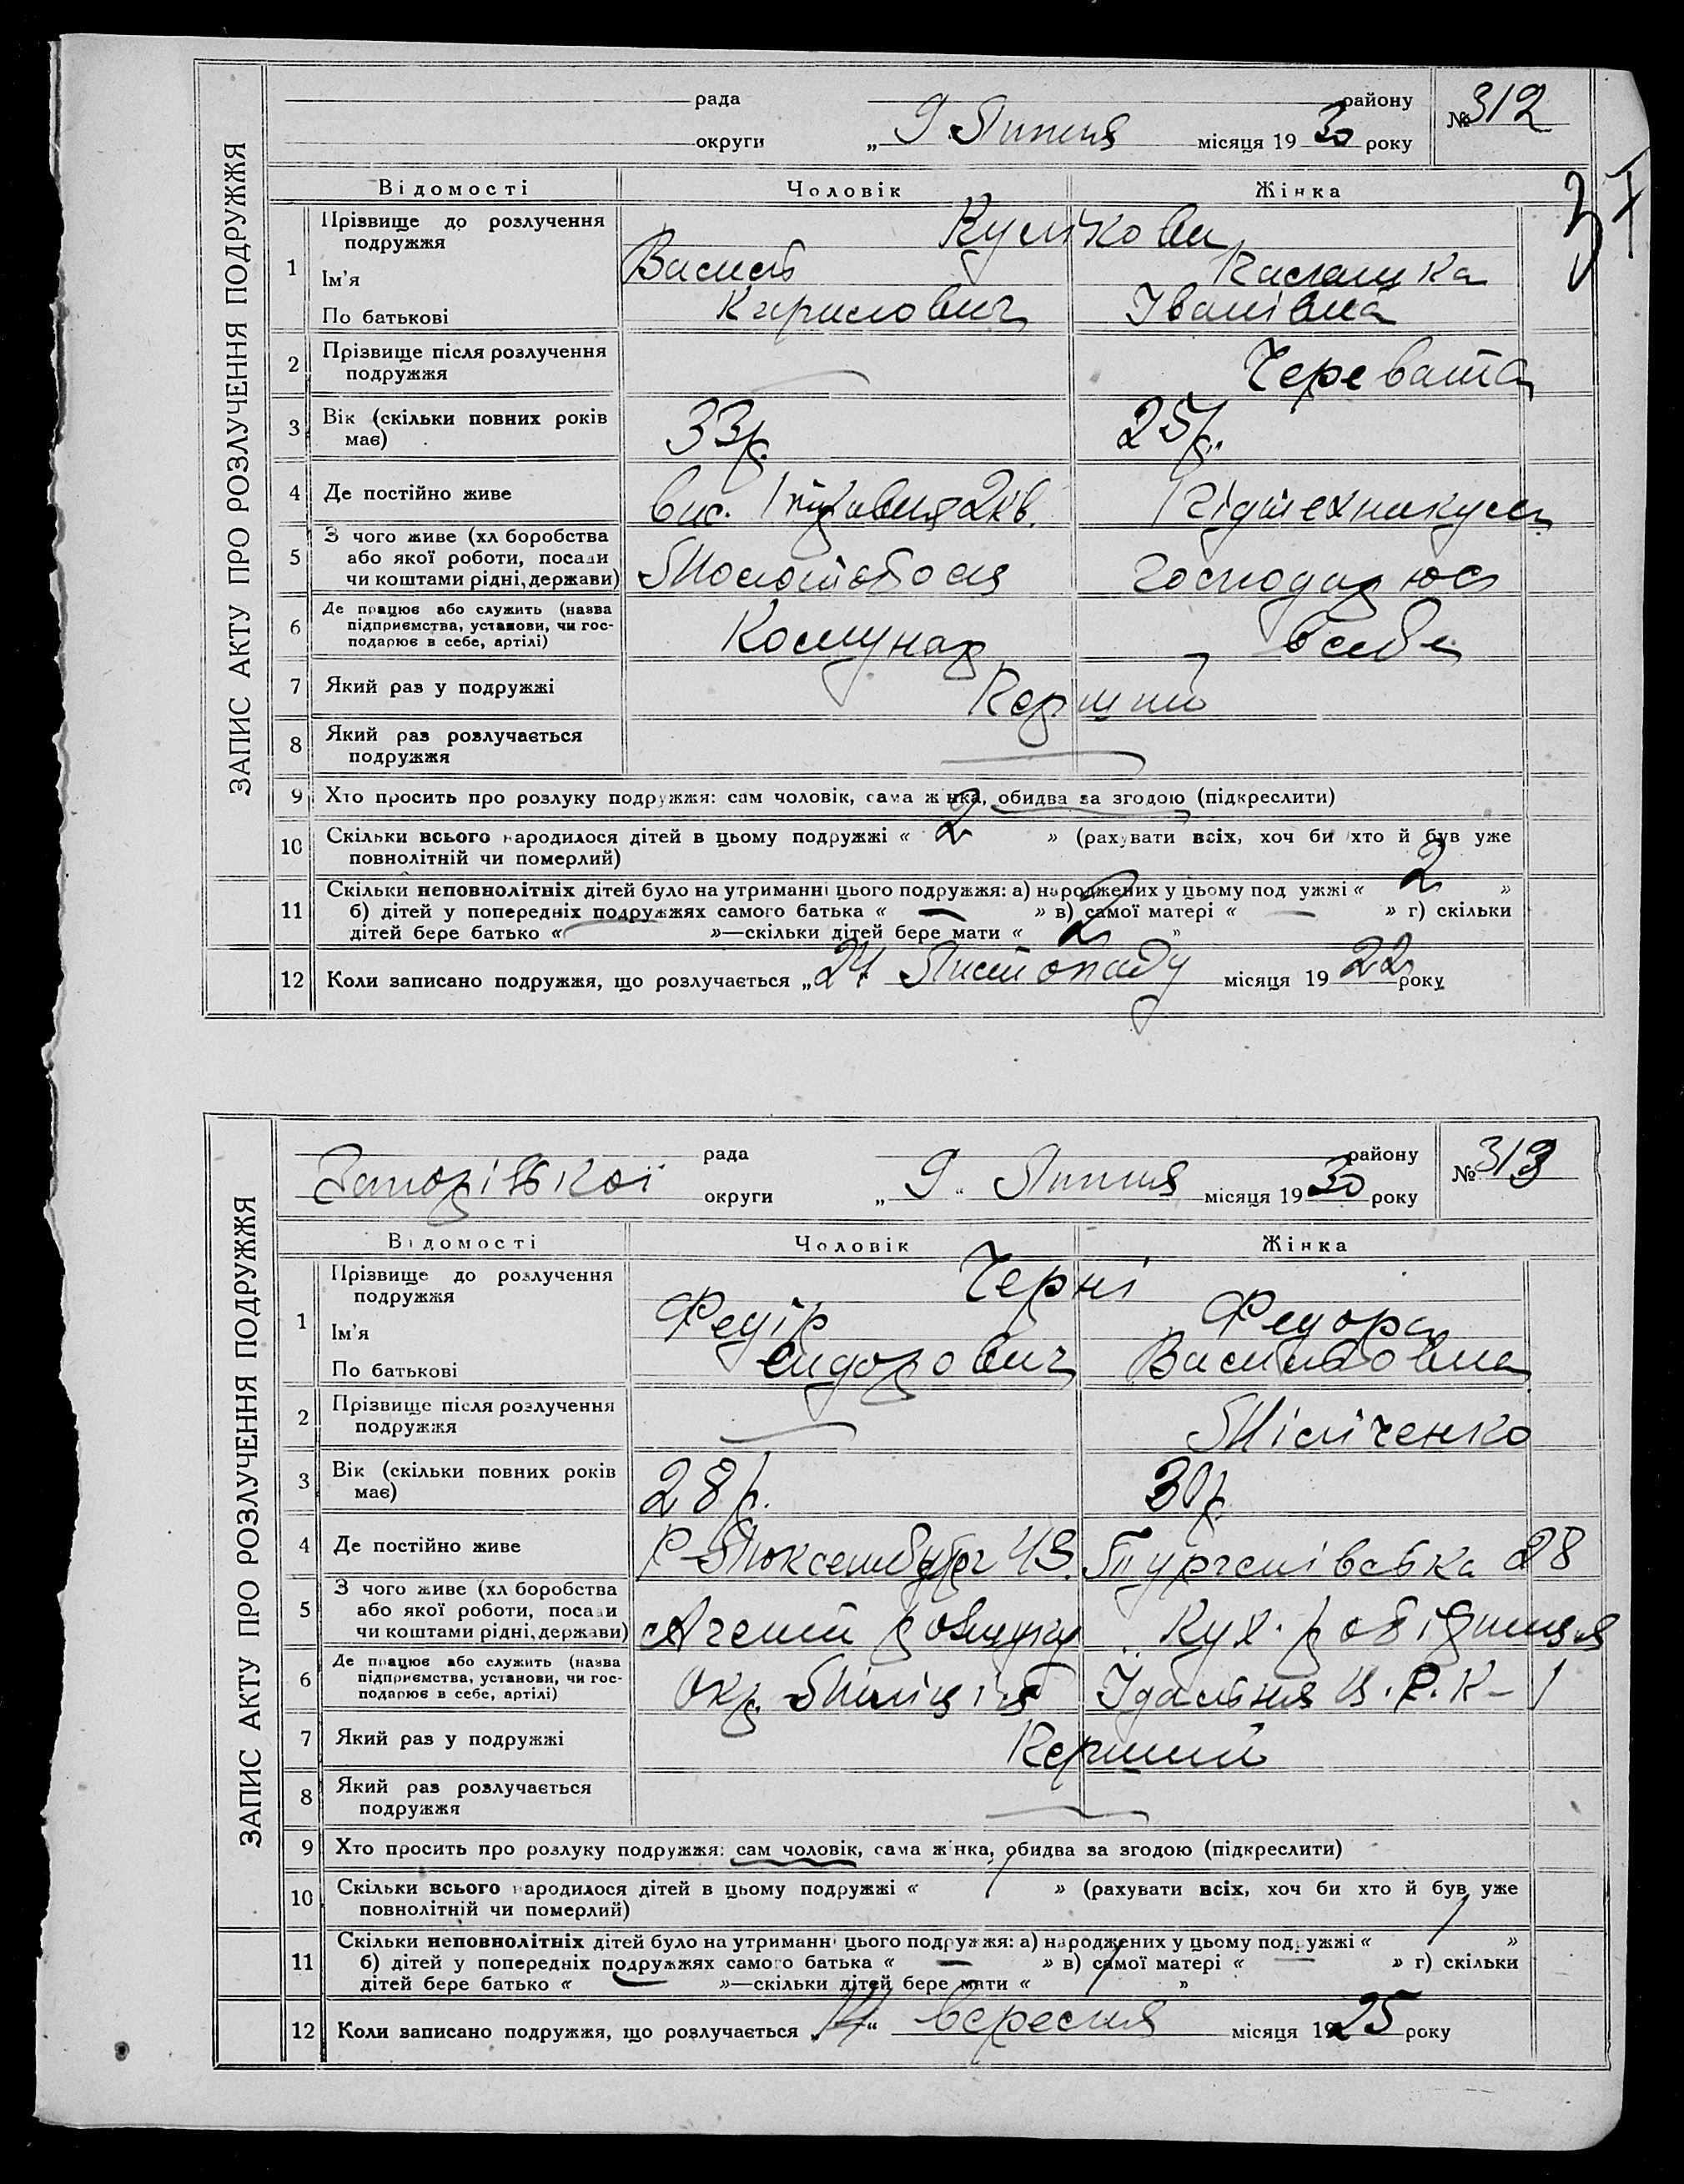 ЗАПИС АКТУ ПРО РОЗЛУЧЕННЯ ПОДРУЖЖЯ
рада району
№ 312
округи „ 9 Липня місяця 19 30 року
Відомості Чоловік Жінка
1 Прізвище до розлучення подружжя Кулікови
Ім'я Василь
По батькові Кирилович Іванівна
2 Прізвище після розлучення подружжя — Черевата
3 Вік (скільки повних років має) 33 р. 25 р.
4 Де постійно живе вис. 1 травня 2 кв.
5 З чого живе (хл боробства або якої роботи, посади чи коштами рідні, держави) Молотобоєц господарює
6 Де працює або служить (назва підприємства, установи, чи господарює в себе, артілі) Комунар в себе
7 Який раз у подружжі Перший
8 Який раз розлучається подружжя —
9 Хто просить про розлуку подружжя: сам чоловік, сама жінка, обидва за згодою (підкреслити)
10 Скільки всього народилося дітей в цьому подружжі « 2 » (рахувати всіх, хоч би хто й був уже
повнолітній чи померлий)
11 Скільки неповнолітніх дітей було на утриманні цього подружжя: а) народжених у цьому подружжі « 2 »
б) дітей у попередніх подружжях самого батька « — » в) самої матері « — » г) скільки
дітей бере батько « — »—скільки дітей бере мати « 2 »
12 Коли записано подружжя, що розлучається „ 24 Листопаду місяця 19 22 року
ЗАПИС АКТУ ПРО РОЗЛУЧЕННЯ ПОДРУЖЖЯ
рада району
№ 313
Запорізької округи „ 9 “ Липня місяця 19 30 року
Відомості Чоловік Жінка
1 Прізвище до розлучення подружжя Черні
Ім'я Федір Федора
По батькові Сидорович Васильовна
2 Прізвище після розлучення подружжя — Міліченко
3 Вік (скільки повних років має) 28 р. 30 р.
4 Де постійно живе Р-Люксембург 43. Тургенівська 28
5 З чого живе (хл боробства або якої роботи, посади чи коштами рідні, держави) Агент розшуку Кух. робітниця
6 Де працює або служить (назва підприємства, установи, чи господарює в себе, артілі) Окр. Міліція Їдальня Ц.Р.К-1
7 Який раз у подружжі Перший
8 Який раз розлучається подружжя —
9 Хто просить про розлуку подружжя: сам чоловік, сама жінка, обидва за згодою (підкреслити)
10 Скільки всього народилося дітей в цьому подружжі « 1 » (рахувати всіх, хоч би хто й був уже
повнолітній чи померлий)
11 Скільки неповнолітніх дітей було на утриманні цього подружжя: а) народжених у цьому подружжі « 1 »
б) дітей у попередніх подружжях самого батька « — » в) самої матері « — » г) скільки
дітей бере батько « — »—скільки дітей бере мати « 1 »
12 Коли записано подружжя, що розлучається „ 14 “ вересня місяця 19 25 року